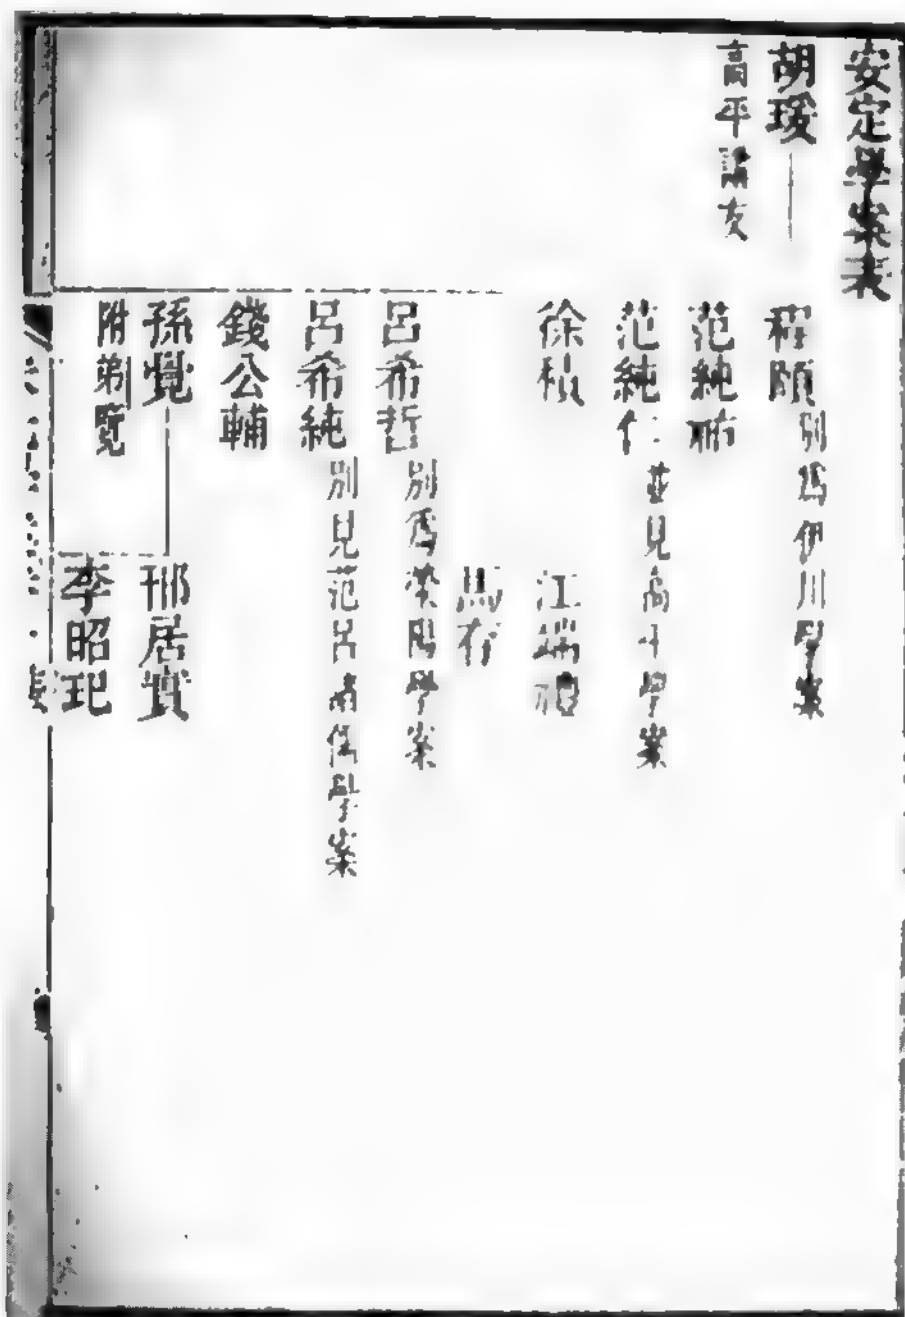 安定學案表
胡瑗
高平講友
程頤別爲伊川學案
范純祐
范純仁並見高平學案
徐積
江端禮
馬存
呂希哲別爲滎陽學案
呂希純別見范呂諸儒學案
錢公輔
孫覺
附弟覽
邢居實
李昭玘